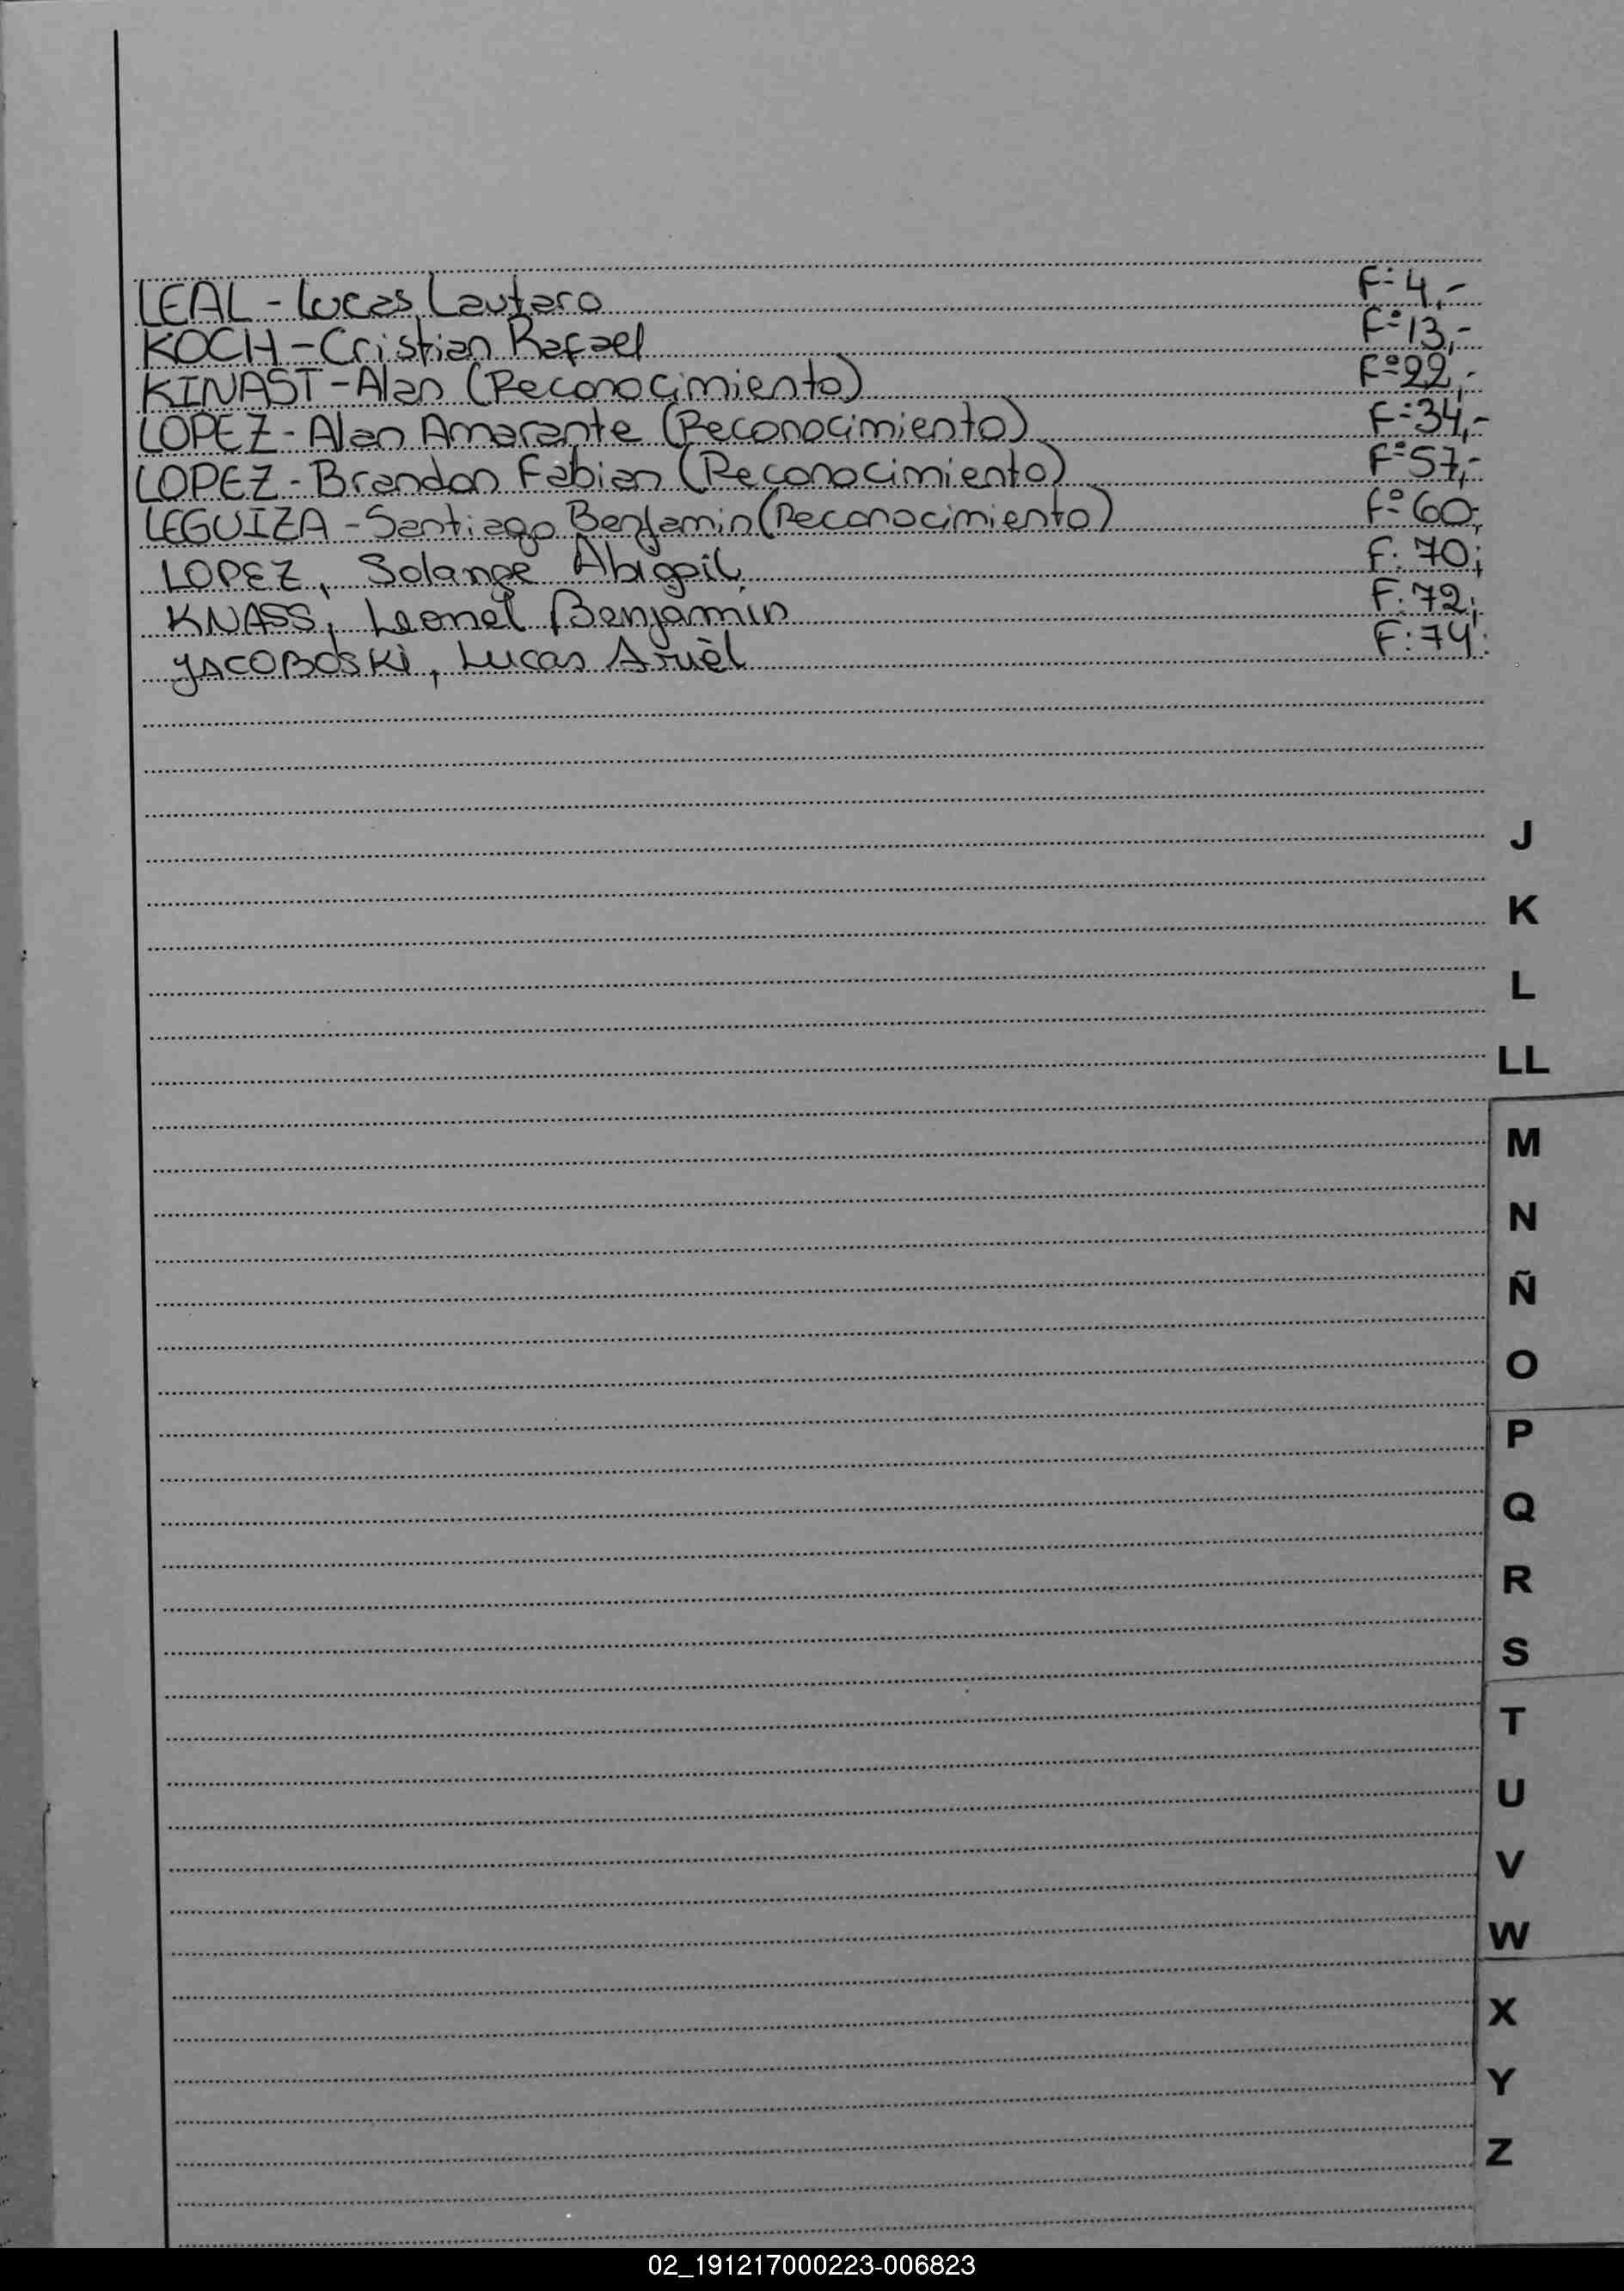 LEAL - Lucas Lautaro F° 4,-
KOCH - Cristian Rafael F° 13,-
KINAST - Alan (Reconocimiento) F° 22,-
LOPEZ - Alan Amarante (Reconocimiento) F° 34,-
LOPEZ - Brandon Fabian (Reconocimiento) F° 57,-
LEGUIZA - Santiago Benjamin (Reconocimiento) F° 60,
LOPEZ, Solange Abigail F: 70;
KNASS, Leonel Benjamin F: 72;
JACOBOSKI, Lucas Ariel F: 74:
J
K
L
LL
M
N
Ñ
O
P
Q
R
S
T
U
V
W
X
Y
Z
02_191217000223-006823